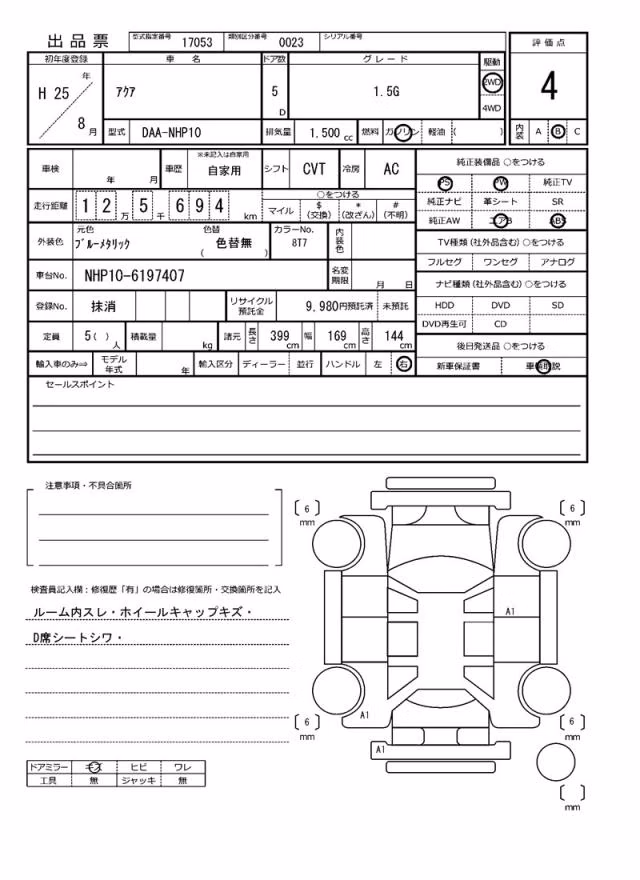 出品票 型式指定番号 17053 類別区分番号 0023 シリアル番号
評価点
初年度登録 車名 ドア数 グレード 駆動
H 25 年 8 月 アクア 5 D 1.5G 2WD 4WD 4
型式 DAA-NHP10 排気量 1.500 cc 燃料 ガソリン 軽油 ( ) 内装 A B C
車検 年 月 車歴 ※未記入は自家用 自家用 シフト CVT 冷房 AC
純正装備品 ○をつける
PS PW 純正TV
走行距離 1 2 万 5 千 6 9 4 km ○をつける
マイル $(交換) *(改ざん) #(不明)
純正ナビ 革シート SR
純正AW エアB ABS
外装色 元色 ブルーメタリック 色替 ( 色替無 ) カラーNo. 8T7 内装色
TV種類(社外品含む)○をつける
フルセグ ワンセグ アナログ
車台No. NHP10-6197407 名変期限 月 日
ナビ種類(社外品含む)○をつける
登録No. 抹消 リサイクル預託金 9,980円預託済 未預託
HDD DVD SD
DVD再生可 CD
定員 5( ) 人 積載量 kg 諸元 長さ 399 cm 幅 169 cm 高さ 144 cm
後日発送品 ○をつける
輸入車のみ⇒ モデル年式 年 輸入区分 ディーラー 並行 ハンドル 左 右
新車保証書
セールスポイント
注意事項・不具合箇所
6 mm
6 mm
検査員記入欄:修復歴「有」の場合は修復箇所・交換箇所を記入
ルーム内スレ・ホイールキャップキズ・
A1
D席シートシワ・
A1
6 mm
6 mm
A1
ドアミラー キズ ヒビ ワレ
工具 無 ジャッキ 無
mm